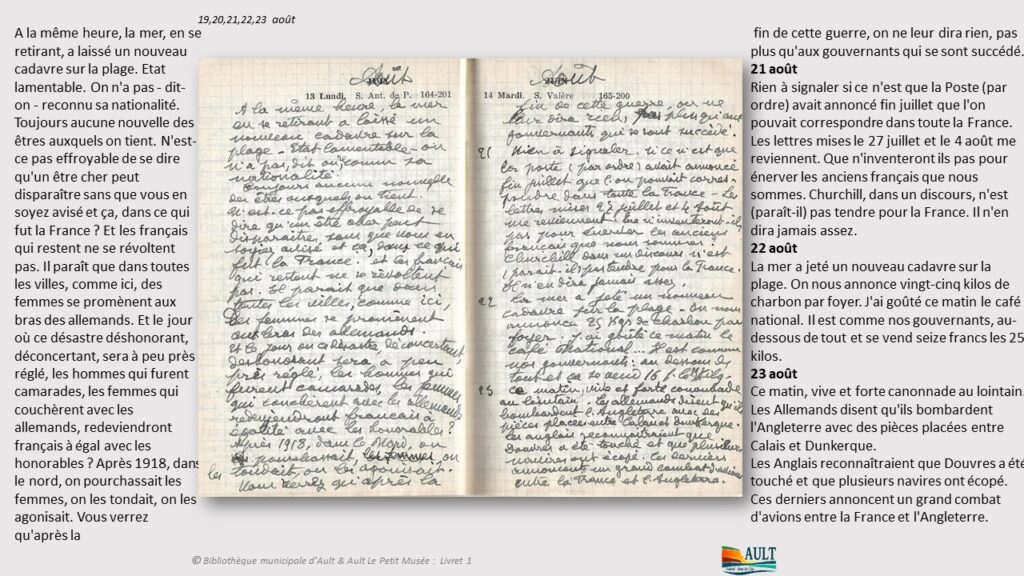 19,20,21,22,23 août
A la même heure, la mer, en se
retirant, a laissé un nouveau
cadavre sur la plage. Etat
lamentable. On n'a pas - dit-
on - reconnu sa nationalité.
Toujours aucune nouvelle des
êtres auxquels on tient. N'est-
ce pas effroyable de se dire
qu'un être cher peut
disparaître sans que vous en
soyez avisé et ça, dans ce qui
fut la France ? Et les français
qui restent ne se révoltent
pas. Il paraît que dans toutes
les villes, comme ici, des
femmes se promènent aux
bras des allemands. Et le jour
où ce désastre déshonorant,
déconcertant, sera à peu près
réglé, les hommes qui furent
camarades, les femmes qui
couchèrent avec les
allemands, redeviendront
français à égal avec les
honorables ? Après 1918, dans
le nord, on pourchassait les
femmes, on les tondait, on les
agonisait. Vous verrez
qu'après la
Août
13 Lundi. S. Ant. de P. 164-201
A la même heure, la mer
en se retirant a laissé un
nouveau cadavre sur la
plage - Etat lamentable - on
n'a pas, dit on, reconnu sa
nationalité.
Toujours aucune nouvelle
des êtres auxquels on tient.
N'est-ce pas effroyable de se
dire qu'un être cher peut
disparaître, sans que vous en
soyiez avisé et ça, dans ce qui
fut la France. et les français
qui restent ne se révoltent
pas. Il paraît que dans
toutes les villes, comme ici,
des femmes se promènent
aux bras des allemands.
Et le jour où ce désastre, déconcertant
déshonorant sera à peu
près réglé, les hommes qui
furent camarades, les femmes
qui couchèrent avec les allemands
redeviendront français à
égalité avec les honorables ?
Après 1918, dans le Nord, on
pourchassait les femmes, on les
tondait, on les agonisait.
Vous verrez qu'après la
Août
14 Mardi. S. Valère 165-200
fin de cette guerre, on ne
leur dira rien, pas plus qu'aux
gouvernants qui se sont succédé.
21 Rien à signaler. si ce n'est que
la poste (par ordre) avait annoncé
fin juillet que l'on pouvait corres-
pondre dans toute la France - Les
lettres mises le 27 juillet et le 4 août
me reviennent. Que n'inventeront-ils
pas pour énerver les anciens
français que nous sommes ?
Churchill dans un discours n'est
(paraît-il) pas tendre pour la France.
Il n'en dira jamais assez.
22 La mer a jeté un nouveau
cadavre sur la plage - On nous
annonce 25 Kgs de charbon par
foyer. J'ai goûté ce matin le
café national... Il est comme
nos gouvernants : au dessous de
tout et ça se vend 16 f.
23 Ce matin, vive et forte canonnade
au lointain. Les allemands disent qu'ils
bombardent l'Angleterre avec des
pièces placées entre Calais et Dunkerque.
Les anglais reconnaîtraient que
Douvres a été touché et que plusieurs
navires ont écopé. Ces derniers
annoncent un grand combat d'avions
entre la France et l'Angleterre.
fin de cette guerre, on ne leur dira rien, pas
plus qu'aux gouvernants qui se sont succédé.
21 août
Rien à signaler si ce n'est que la Poste (par
ordre) avait annoncé fin juillet que l'on
pouvait correspondre dans toute la France.
Les lettres mises le 27 juillet et le 4 août me
reviennent. Que n'inventeront ils pas pour
énerver les anciens français que nous
sommes. Churchill, dans un discours, n'est
(paraît-il) pas tendre pour la France. Il n'en
dira jamais assez.
22 août
La mer a jeté un nouveau cadavre sur la
plage. On nous annonce vingt-cinq kilos de
charbon par foyer. J'ai goûté ce matin le café
national. Il est comme nos gouvernants, au-
dessous de tout et se vend seize francs les 25
kilos.
23 août
Ce matin, vive et forte canonnade au lointain.
Les Allemands disent qu'ils bombardent
l'Angleterre avec des pièces placées entre
Calais et Dunkerque.
Les Anglais reconnaîtraient que Douvres a été
touché et que plusieurs navires ont écopé.
Ces derniers annoncent un grand combat
d'avions entre la France et l'Angleterre.
© Bibliothèque municipale d'Ault & Ault Le Petit Musée : Livret 1
AULT